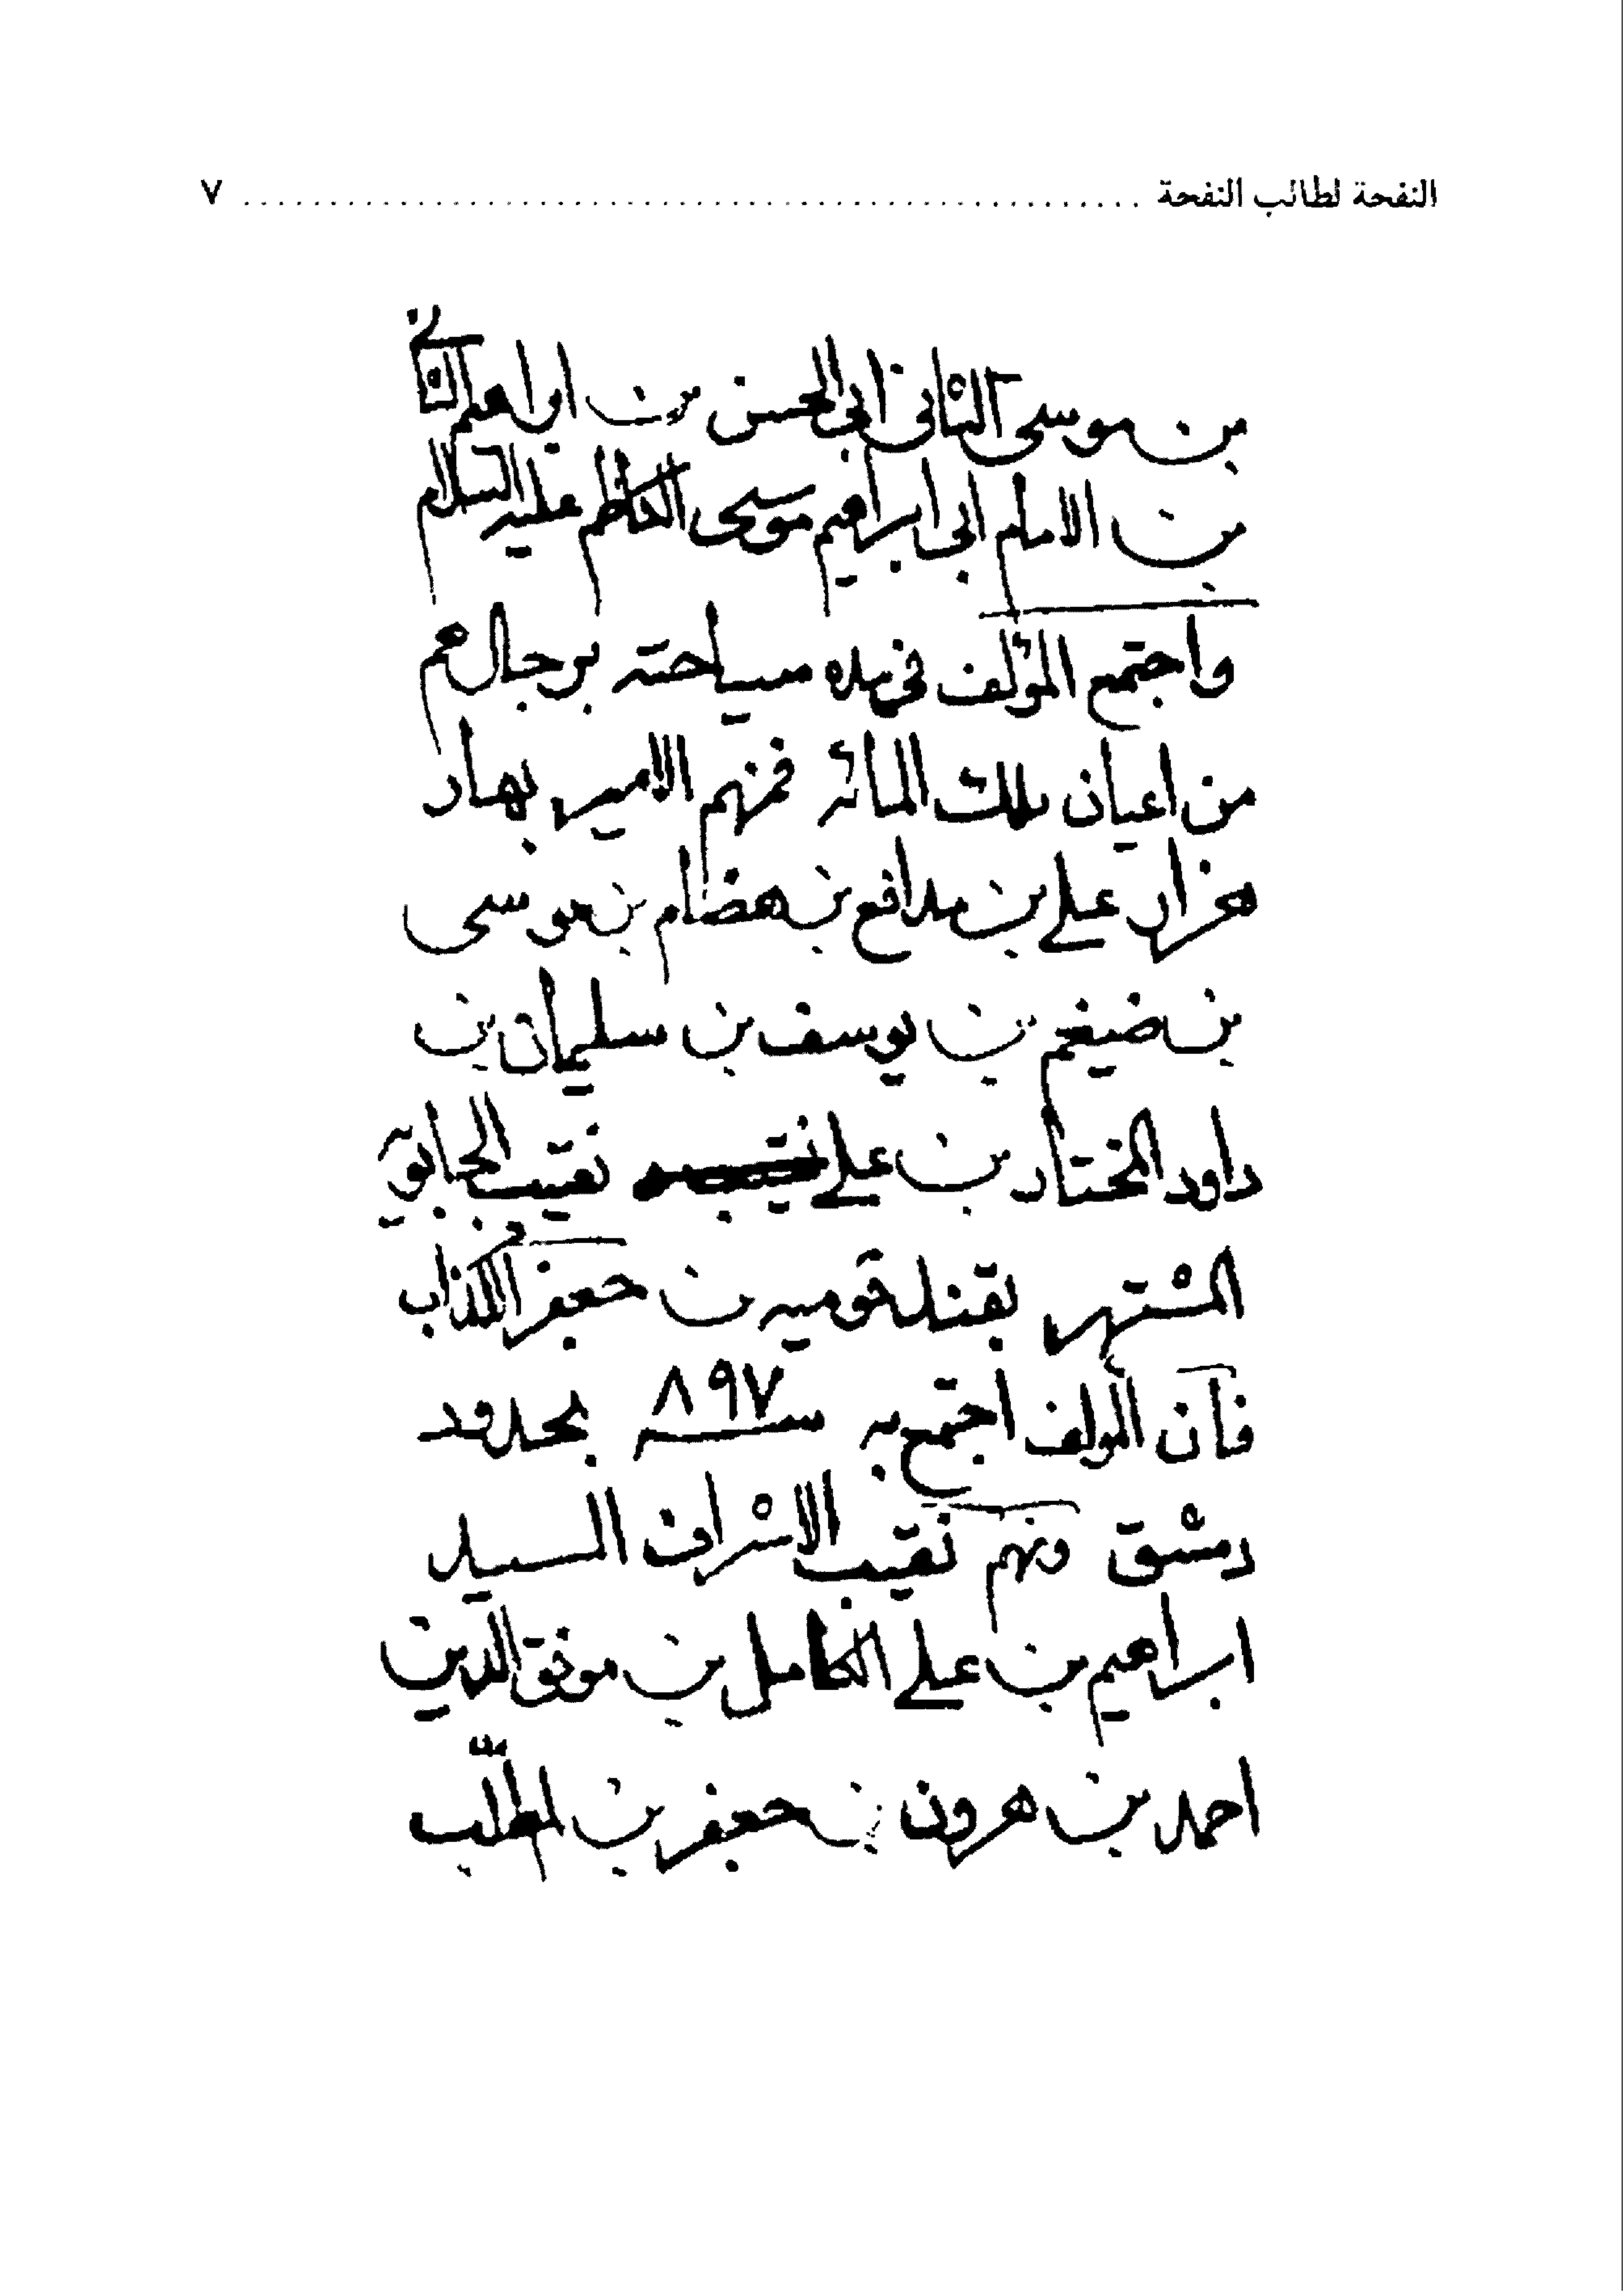 النفحة لطالب النفحة ........................................ ٧
بن موسى الثاني ابي الحسن بن ابراهيم
بن الامام ابي ابراهيم موسى الكاظم عليه السلام
واجتمع المؤلف في مدة سياحته برجال هم
من اعيان تلك المائة فمنهم الامير بهاد
هزار علي بن مدافع بن هضام بن موسى
بن ضيغم بن يوسف بن سليمان بن
داود المختار بن علي نقيب الحايرة
المشتهر بقتلة قوميه بن جعفر الكذاب
فان المولف اجتمع به سنه ٨٩٧ بحدود
دمشق ومنهم نقيب الاشراف السيد
ابراهيم بن علي الكامل بن موفق الدين
احمد بن هرون بن جعفر بن المطلب